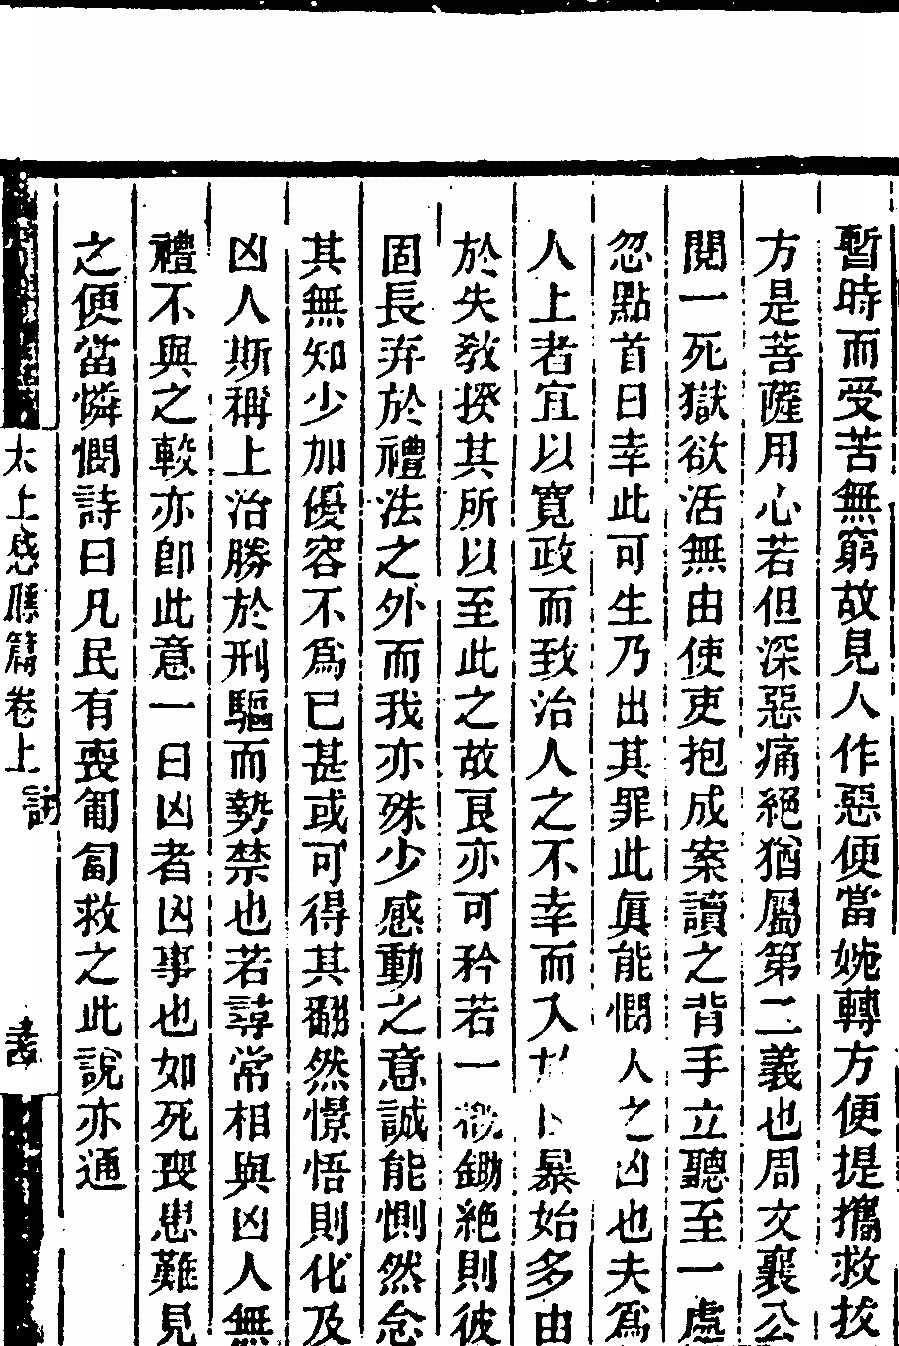 暫時而受苦無窮故見人作惡便當婉轉方便提攜救拔
方是菩薩用心若但深惡痛絕猶屬第二義也周文襄公
閱一死獄欲活無由使吏抱成案讀之背手立聽至一處
忽點首曰幸此可生乃出其罪此眞能憫人之凶也夫爲
人上者宜以寬政而致治人之不幸而入暴始多由
於失敎揆其所以至此之故良亦可矜若一槪鋤絕則彼
固長弃於禮法之外而我亦殊少感動之意誠能惻然念
其無知少加優容不爲已甚或可得其翻然憬悟則化及
凶人斯稱上治勝於刑驅而勢禁也若尋常相與凶人無
禮不與之較亦卽此意一曰凶者凶事也如死喪患難見
之便當憐憫詩曰凡民有喪匍匐救之此說亦通
太上感應篇卷上